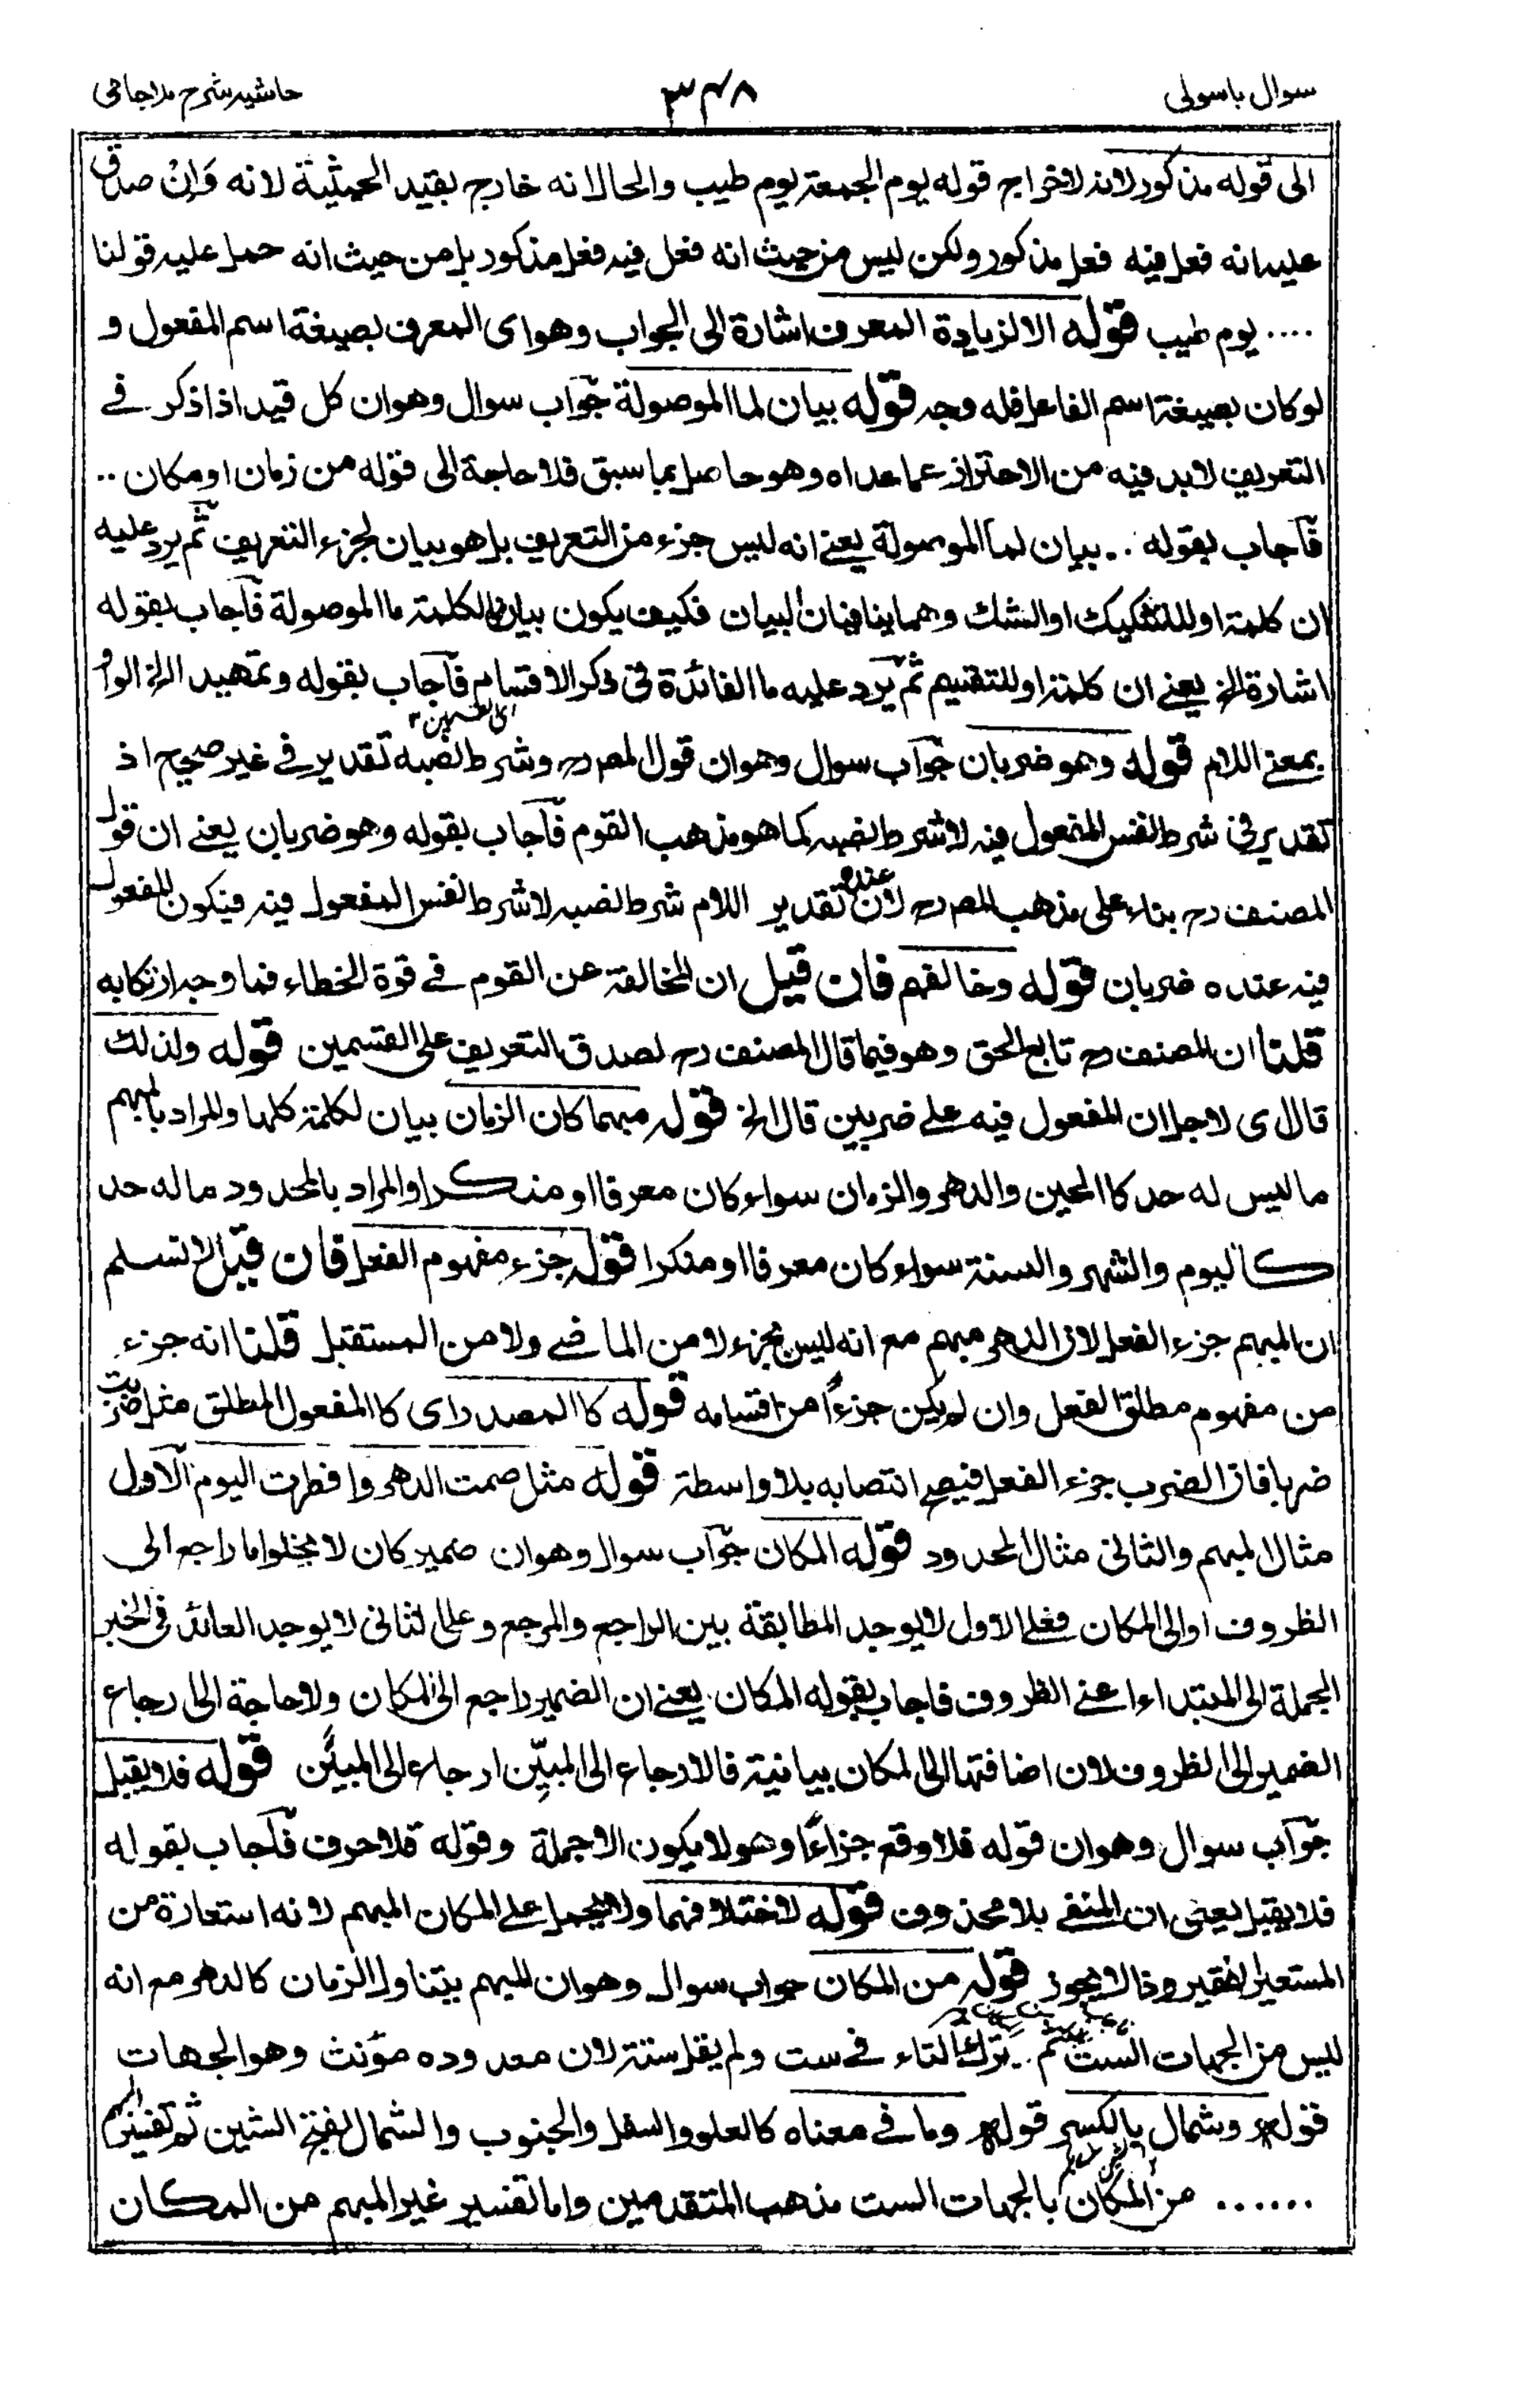 سوال باسولی ۳۴۸ حاشیه شرح ملا جامی
الی قوله مذکور لانه لاخراج قوله یوم الجمعة یوم طیب والحال انه خارج بقید الحیثیة لانه وَاِنْ صدق
علیه انه فعل فیه فعل مذکور ولکن لیس من حیث انه فعل فیه فعل مذکور بل من حیث انه حمل علیه قولنا
.... یوم طیب قوله الا لزیادة المعرف اشارة الی الجواب وهو ای المعرف بصیغة اسم المفعول و
لوکان بصیغة اسم الفاعل فله وجه قوله بیان لما الموصولة جوٓاب سوال وهو ان کل قید اذا ذکر فے
التعریف لابد فیه من الاحتراز عما عداه وهو حاصل بما سبق فلا حاجة الی قوله من زمان او مکان ..
فآجاب بقوله .. بیان لما الموصولة یعنے انه لیس جزء من التعریف بل هو بیان لجزء التعریف ثم یرد علیه
ان کلمة او للتشکیک او الشك وهما ینافیان البیان فکیف یکون بیانا لکلمة ما الموصولة فآجاب بقوله
اشارة الخ یعنے ان کلمة او للتقسیم ثم یرد علیه ما الفائدة فی ذکر الاقسام فآجاب بقوله وتمهید الخ الواو
بمعنے اللام قوله وهو ضربان جوٓاب سوال وهو ان قول المصرح وشرط نصبه تقدیر فے غیر صحیح اذ
تقدیر فی شرط لنفس المفعول فیه لا شرط نصبه کما هو مذهب القوم فآجاب بقوله وهو ضربان یعنے ان قول
المصنف رح بناء علی مذهب المصرح لان عنده تقدیر اللام شرط نصبه لا شرط نفس المفعول فیه فیکون المفعول
فیه عنده ضربان قوله وخالفهم فان قیل ان المخالفة عن القوم فے قوة الخطاء فما وجه ارتکابه
قلنا ان المصنف رح تابع الحق وهو فیما قال المصنف رح لصدق التعریف علی القسمین قوله ولذلك
قال ای لاجل ان المفعول فیه علے ضربین قال الخ قوله مبهما کان الزمان بیان لکلمة کلها والمراد بالمبهم
ما لیس له حد کا الحین والدهر والزمان سواء کان معرفا او منکرا والمراد بالمحدود ما له حد
کالیوم والشهر والسنة سواء کان معرفا او منکرا قوله جزء مفهوم الفعل فان قیل لا نسلم
ان المبهم جزء الفعل لان الدهر مبهم مع انه لیس بجزء لا من الماضے ولا من المستقبل قلنا انه جزء
من مفهوم مطلق الفعل وان لم یکن جزءًا من اقسامه قوله کا المصدر ای کا المفعول المطلق مثل ضربت
ضربا فان الضرب جزء الفعل فیصح انتصابه بلا واسطة قوله مثل صمت الدهر وافطرت الیوم الاول
مثال المبهم والثانی مثال المحدود قوله المکان جوٓاب سوال وهو ان ضمیر کان لا یخلوا ما راجع الی
الظروف او الی المکان فعلے الاول لا یوجد المطابقة بین الراجع والمرجع وعلی الثانی لا یوجد العائد فی الخبر
الجملة الی المبتداء اعنے الظروف فاجاب بقوله المکان یعنے ان الضمیر راجع الی المکان ولا حاجة الی ارجاع
الضمیر الی الظروف لان اضافتها الی المکان بیانیة فالارجاع الی المبیِّن ارجاع الی المبیَّن قوله فلا یقبل
جوٓاب سوال وهو ان قوله فلا وقع جزاءً وهو لا یکون الا جملة وقوله فلا حرف فآجاب بقوله
فلا یقبل یعنی ان المنفے بلا محذوف قوله لاختلافهما ولا یحمل علے المکان المبهم لانه استعارة من
المستعیر الفقیر وذا لا یجوز قوله من المکان جواب سوال وهو ان المبهم یتناول الزمان کالدهر مع انه
لیس من الجهات الست ثم .. ترك التاء فے ست ولم یقل ستة لان معدوده مؤنث وهو الجهات
قوله وشمال بالکسر قوله وما فے معناه کالعلو والسفل والجنوب والشمال بفتح الشین ثم تفسیر المبهم
...... من المکان بالجهات الست مذهب المتقدمین واما تفسیر غیر المبهم من المکان